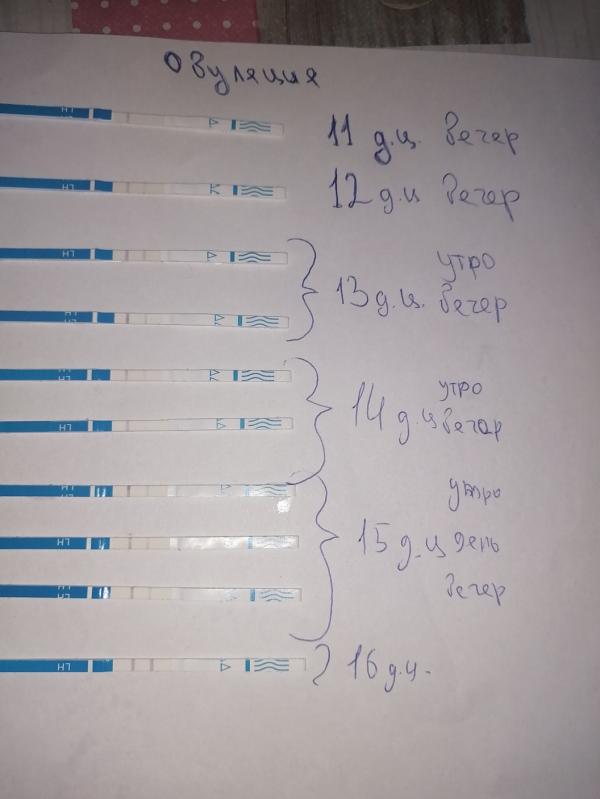 Овуляция
LH
11 д.ц. Вечер
LH
12 д.ц Вечер
LH
утро
13 д.ц. Вечер
LH
LH
утро
14 д.ц Вечер
LH
LH
утро
LH
15 д.ц день
LH
Вечер
LH
16 д.ц.